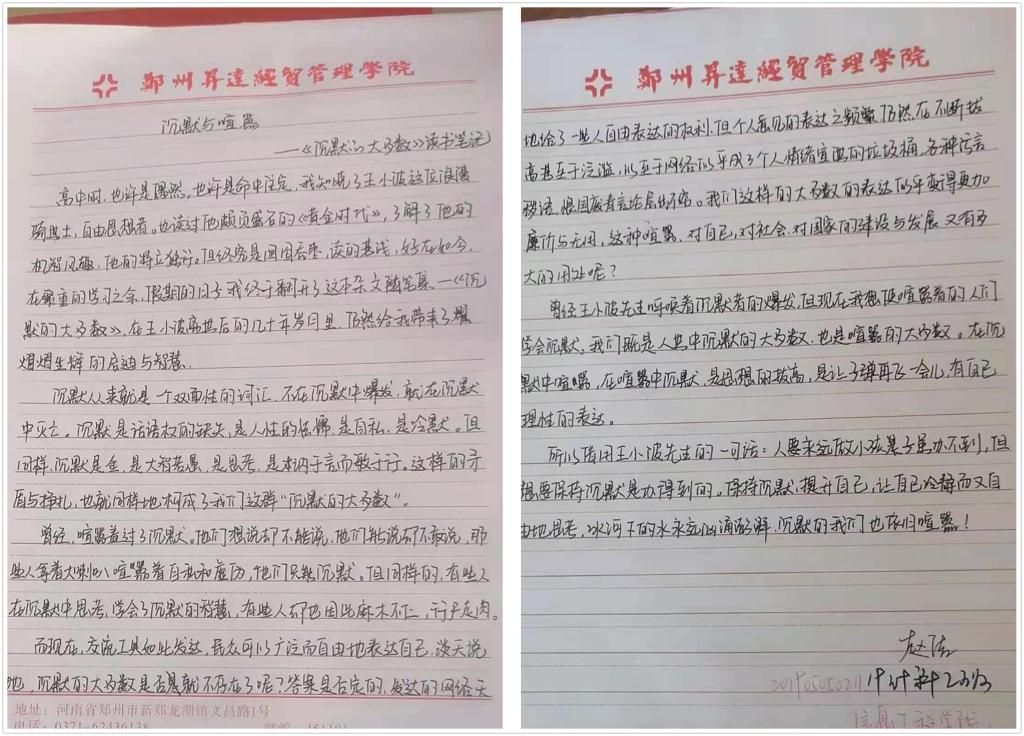 鄭州昇達經貿管理學院
沉默与喧嚣
——《沉默的大多数》读书笔记
高中时,也许是偶然,也许是命中注定,我知晓了王小波这位浪漫
骑士,自由思想者。也读过他颇负盛名的《黄金时代》,了解了他的
机智风趣,他的特立独行。但终究是囫囵吞枣,读的甚浅,好在如今,
在繁重的学习之余,假期的日子我终于翻开了这本杂文随笔集—《沉
默的大多数》,在王小波离世后的几十年岁月里,仍然给我带来了熠
熠生辉的启迪与智慧.
沉默从来就是一个双面性的词汇,不在沉默中爆发,就在沉默
中灭亡。沉默是话语权的缺失,是人性的怯懦,是自私,是冷默。但
同样,沉默是金,是大智若愚,是思考,是本讷于言而敏于行。这样的矛
盾与挣扎,也就同样地构成了我们这群“沉默的大多数”。
曾经,喧嚣盖过了沉默。他们想说却不能说,他们能说却不敢说,那
些人拿着大喇叭喧嚣着自私和虚伪,他们只能沉默。但同样的,有些人
在沉默中思考,学会了沉默的智慧,有些人却也因此麻木不仁,行尸走肉。
而现在,交流工具如此发达,民众可以广泛而自由地表达自己,谈天说
地,沉默的大多数是否就不存在了呢?答案是否定的,发达的网络天
地址:河南省郑州市新郑龙湖镇文昌路1号
电话:0371-62436138
鄭州昇達經貿管理學院
地给了一些人自由表达的权利,但个人意见的表达之频繁仍然在不断拔
高甚至于泛滥,以至于网络似乎成了个人情绪宣泄的垃圾桶,各种污言
秽语,恨国厌者言论层出不穷。我们这样的大多数的表达似乎变得更加
廉价与无用,这种喧嚣,对自己,对社会,对国家的建设与发展又有多
大的用处呢?
曾经王小波先生呼唤着沉默者的爆发,但现在我想使喧嚣着的人们
学会沉默。我们既是人世中沉默的大多数,也是喧嚣的大多数。在沉
默中喧嚣,在喧嚣中沉默,是思想的拔高,是让子弹再飞一会儿,有自己
理性的表达。
所以借用王小波先生的一句话:人要永远做小孩是子虽办不到,但
想要保持沉默是办得到的。保持沉默,提升自己,让自己冷静而又自
由地思考,冰河下的水永远汹涌澎湃,沉默的我们也依旧喧嚣!
赵洁